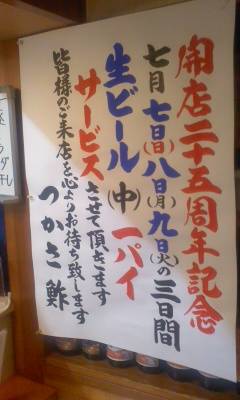 開店二十五周年記念
七月七日(日)八日(月)九日(火)の三日間
生ビール(中)一パイ
サービスさせて頂きます
皆様のご来店を心よりお待ち致します
つかさ鮓